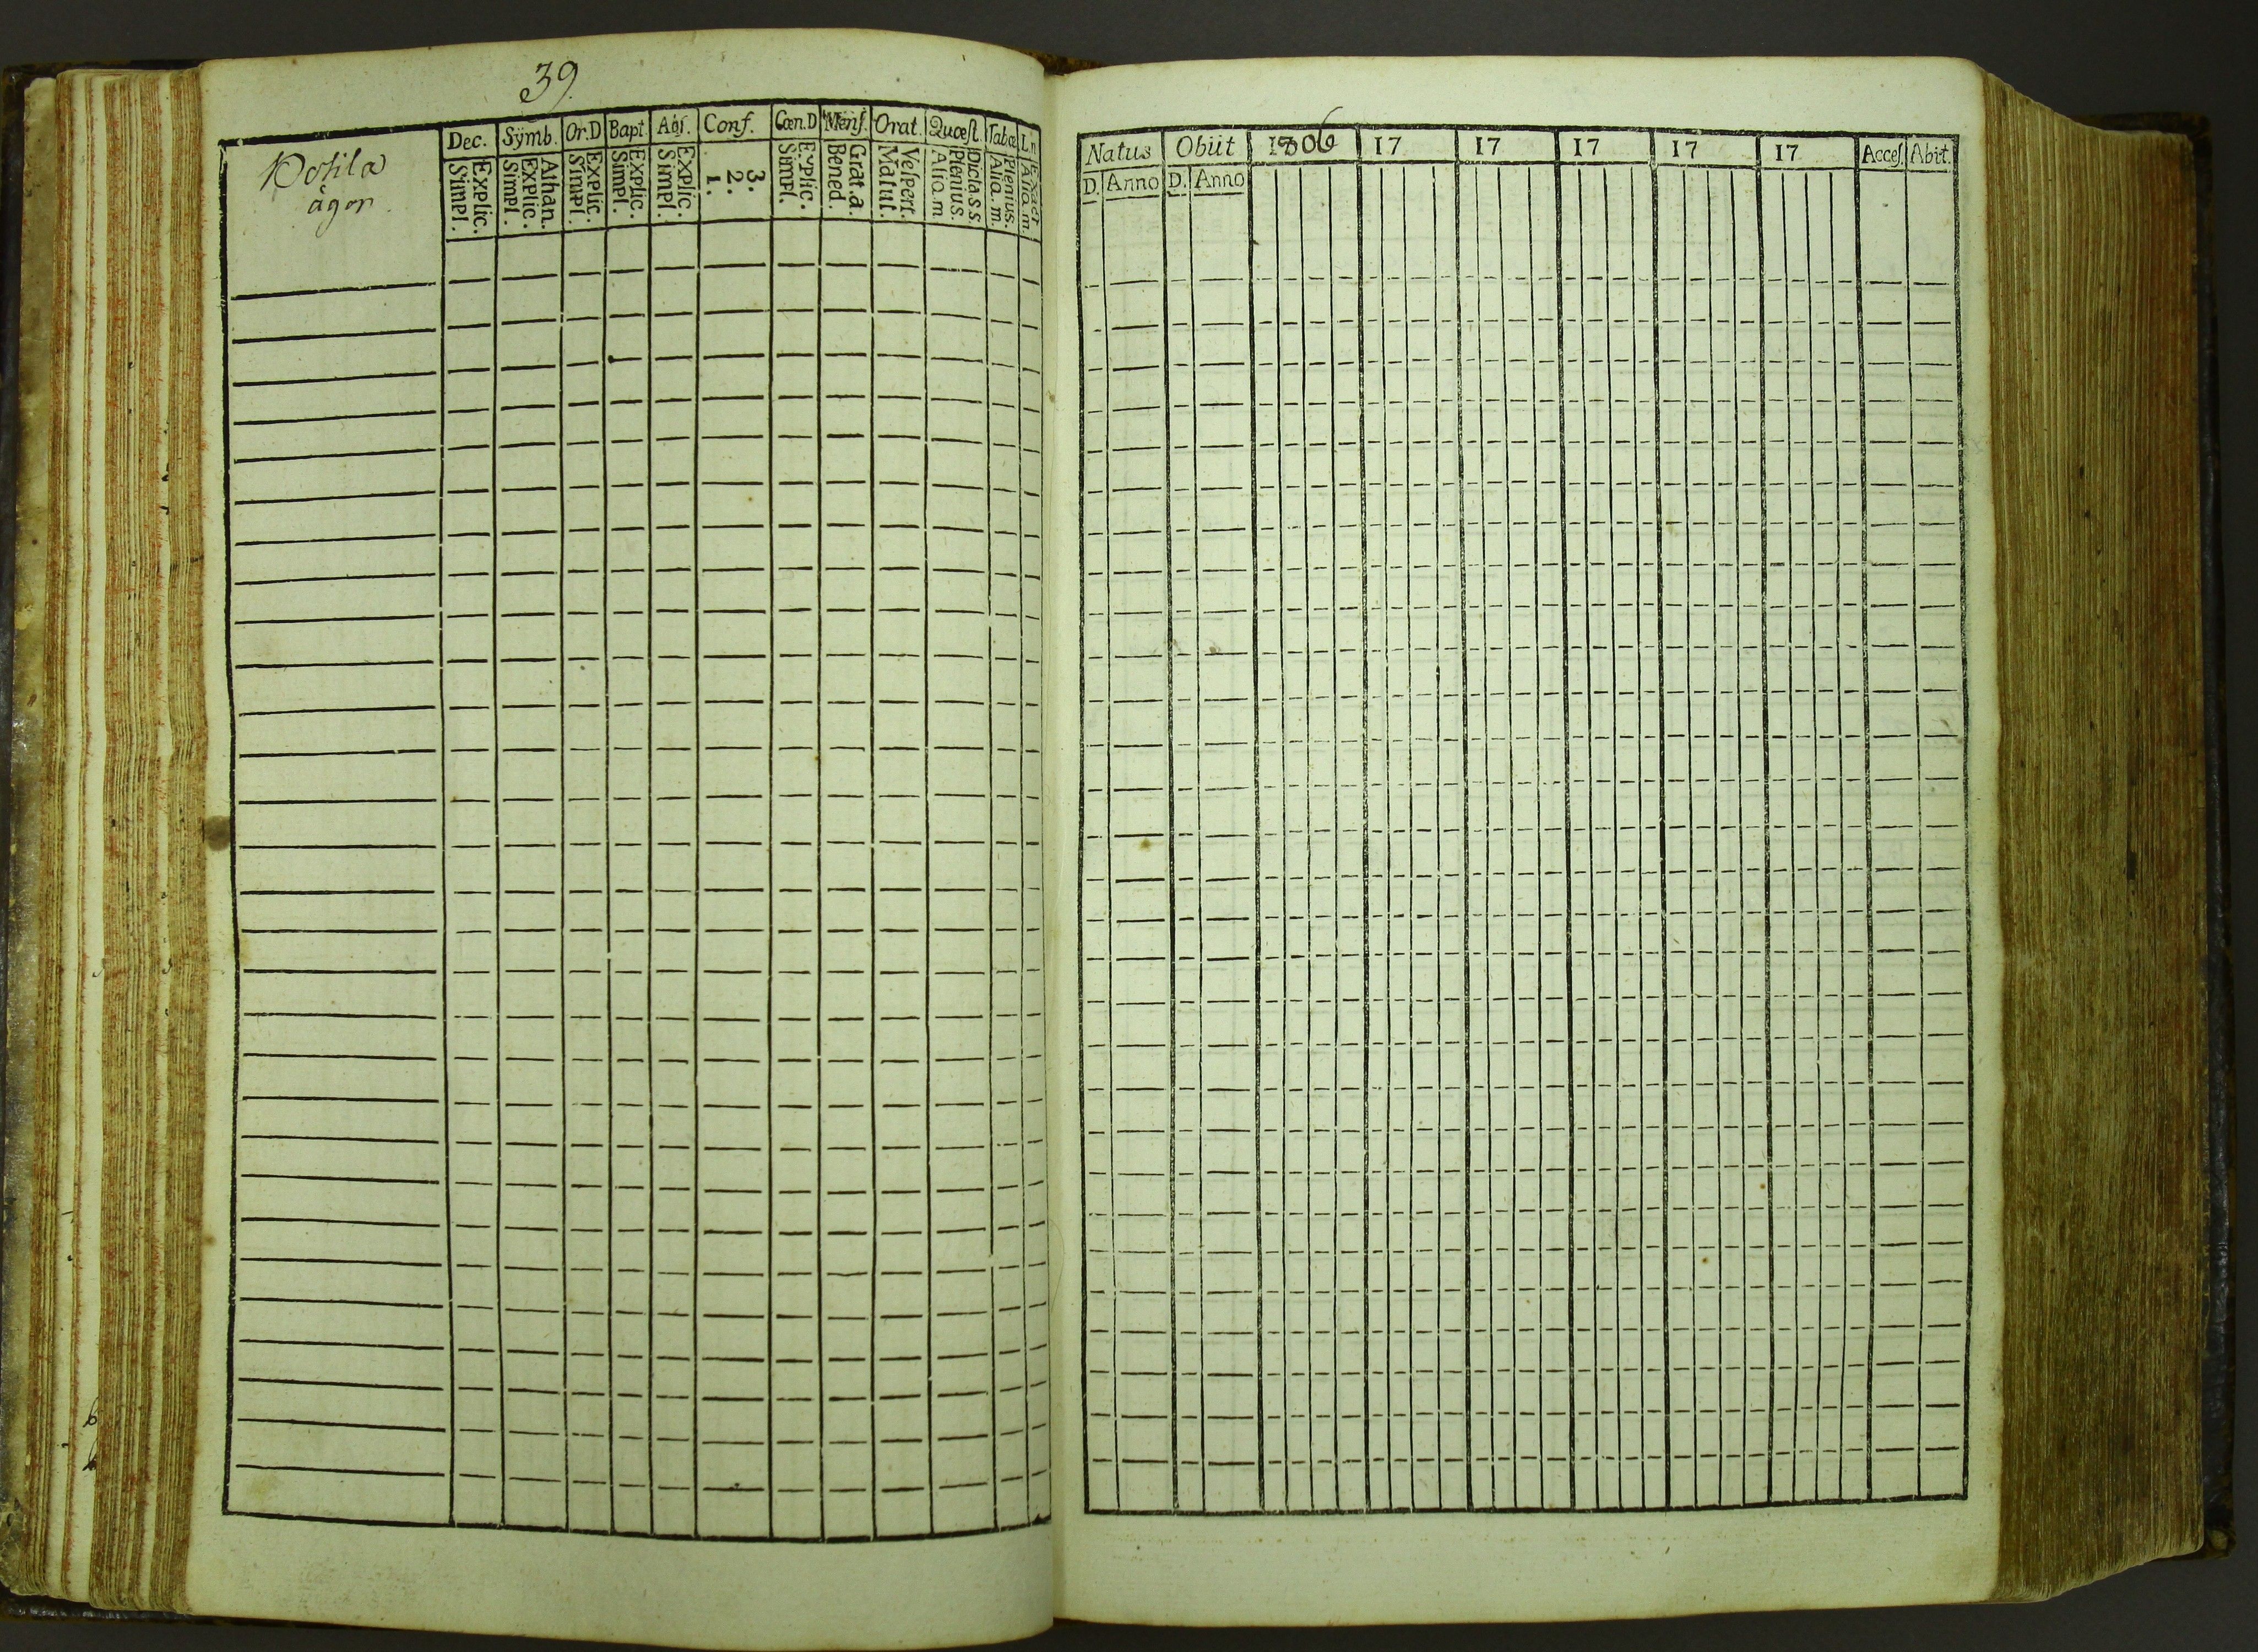 39.
Dec. Sÿmb. Or.D Bapt. Abs. Conf. Cœn.D Mens. Orat. Quæst. Tabœ
ägor
Explic.
Simpl.
Athan.
Explic.
Simpl.
Explic.
Simpl.
Explic.
Simpl.
Explic.
Simpl.
3.
2.
1.
Explic.
Simpl.
Grat.a.
Bened.
Vespert.
Matut.
Dicta s s.
Plenius.
Aliq.m
Plenius.
Aliq.m.
Exact
Aliq.m.
Natus Obiit 1806 17 17 17 17 17 Acces. Abit.
D. Anno D. Anno